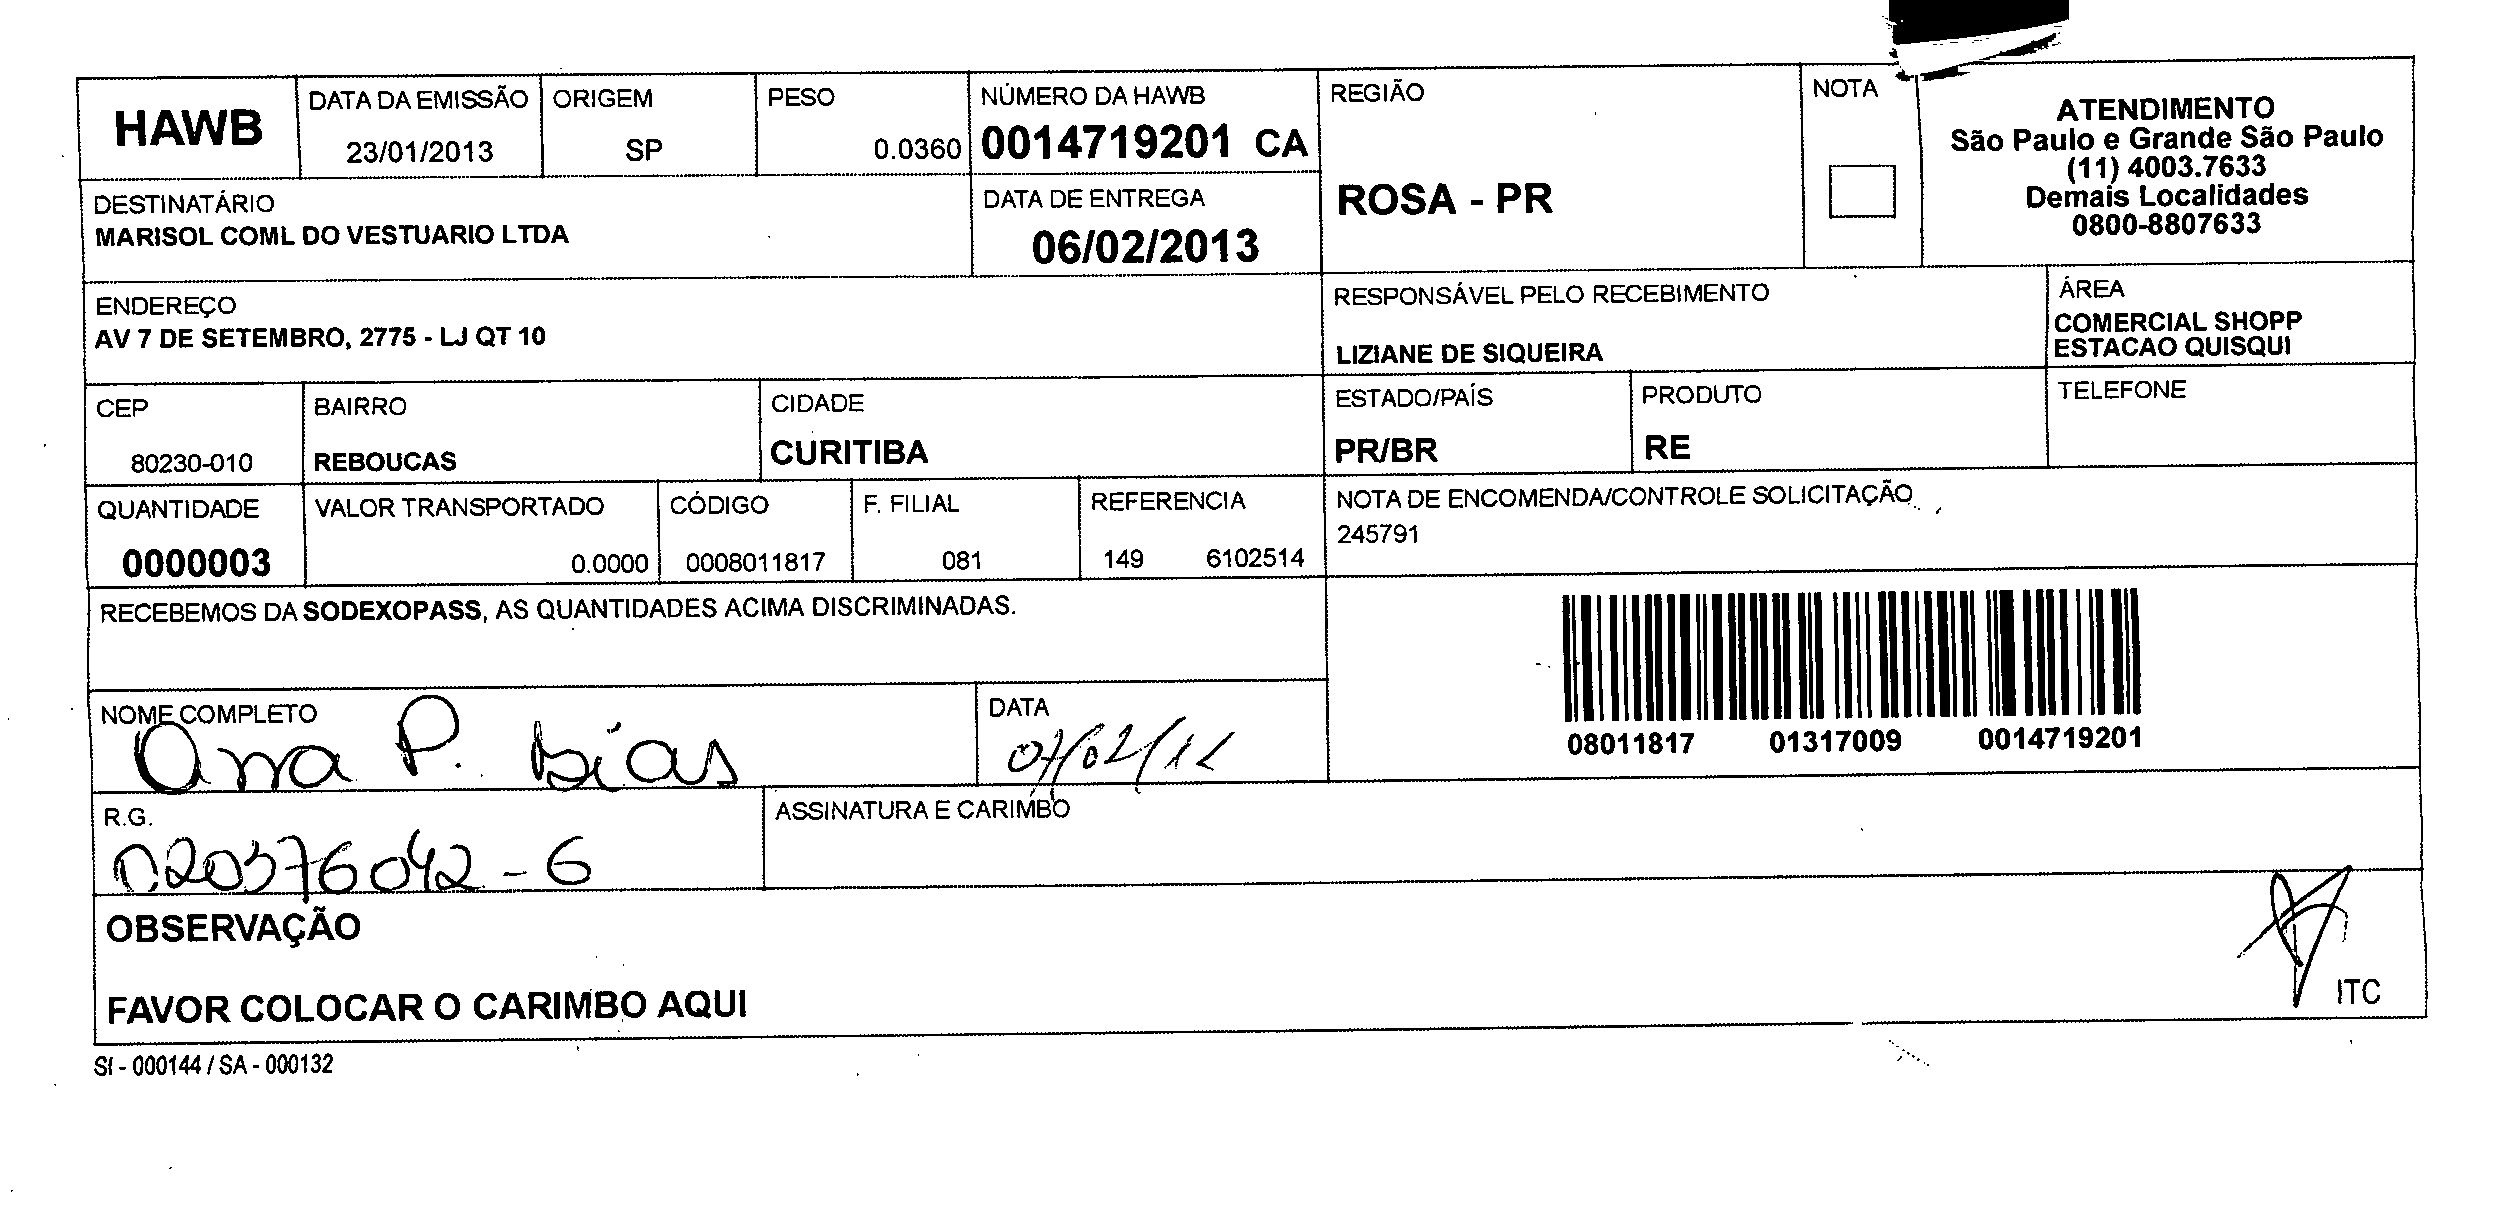 HAWB
DATA DA EMISSÃO
23/01/2013
ORIGEM
SP
PESO
0.0360
NÚMERO DA HAWB
0014719201 CA
REGIÃO
ROSA - PR
NOTA
ATENDIMENTO
São Paulo e Grande São Paulo
(11) 4003.7633
Demais Localidades
0800-8807633
DESTINATÁRIO
MARISOL COML DO VESTUARIO LTDA
DATA DE ENTREGA
06/02/2013
ENDEREÇO
AV 7 DE SETEMBRO, 2775 - LJ QT 10
RESPONSÁVEL PELO RECEBIMENTO
LIZIANE DE SIQUEIRA
ÁREA
COMERCIAL SHOPP
ESTACAO QUISQUI
CEP
80230-010
BAIRRO
REBOUCAS
CIDADE
CURITIBA
ESTADO/PAÍS
PR/BR
PRODUTO
RE
TELEFONE
QUANTIDADE
0000003
VALOR TRANSPORTADO
0.0000
CÓDIGO
0008011817
F. FILIAL
081
REFERENCIA
149 6102514
NOTA DE ENCOMENDA/CONTROLE SOLICITAÇÃO
245791
RECEBEMOS DA SODEXOPASS, AS QUANTIDADES ACIMA DISCRIMINADAS.
08011817 01317009 0014719201
NOME COMPLETO
Ana P. Dias
DATA
07/02/12
R.G.
020376042-6
ASSINATURA E CARIMBO
OBSERVAÇÃO
FAVOR COLOCAR O CARIMBO AQUI
ITC
SI - 000144 / SA - 000132